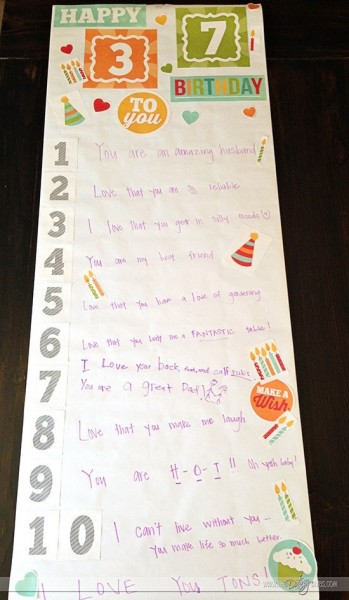 HAPPY
3 7
BIRTHDAY
TO
you
1 You are an amazing husband
2 Love that you are so reliable
3 I love that you get in silly moods!
4 You are my best friend
5 Love that you have a love of gardening
6 Love that you built me a FANTASTIC table!
I Love your back, and calf rubs
7 You are a great Dad!
MAKE A
Wish
8 Love that you make me laugh
9 You are H-O-T!! Oh yeah baby!
10 I can't live without you -
you make life so much better.
I LOVE YOU TONS!